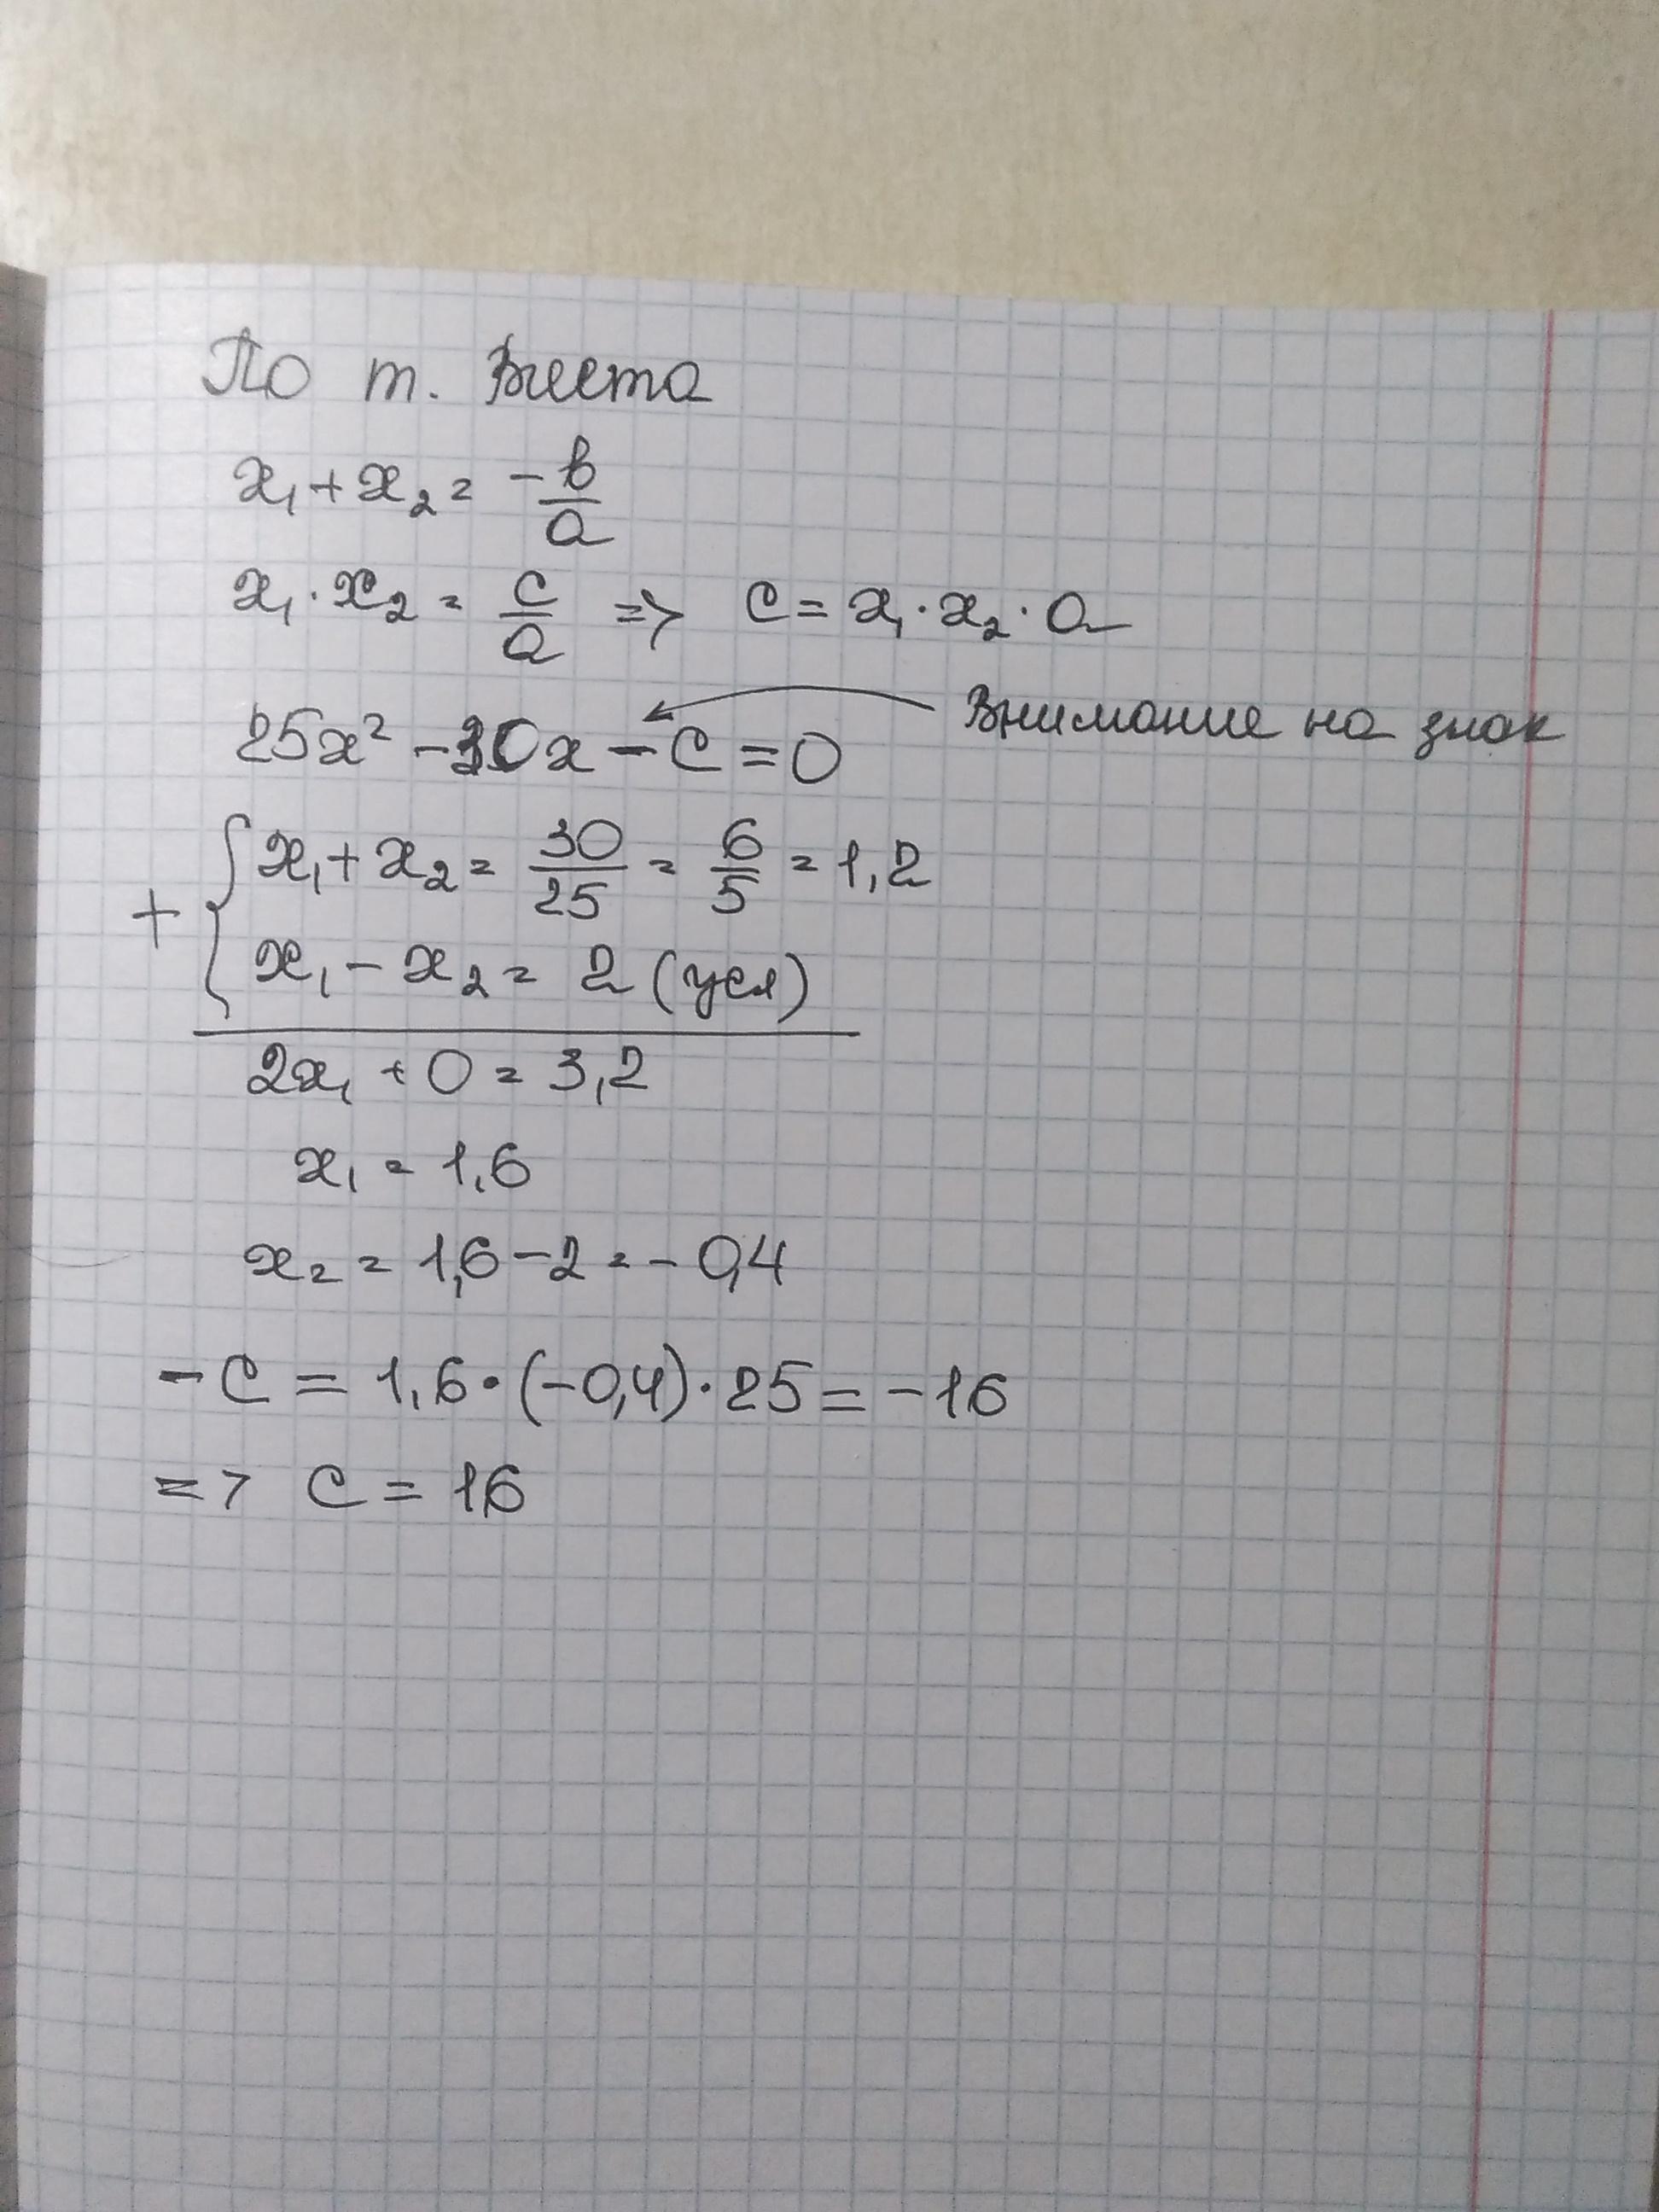 По т. Виета
x₁ + x₂ = - в/а
x₁ · x₂ = с/а => с = x₁ · x₂ · а
25x² - 30x - с = 0 Внимание на знак
+ { x₁ + x₂ = 30/25 = 6/5 = 1,2
x₁ - x₂ = 2 (усл)
2x₁ + 0 = 3,2
x₁ = 1,6
x₂ = 1,6 - 2 = - 0,4
- с = 1,6 · (-0,4) · 25 = - 16
=> с = 16